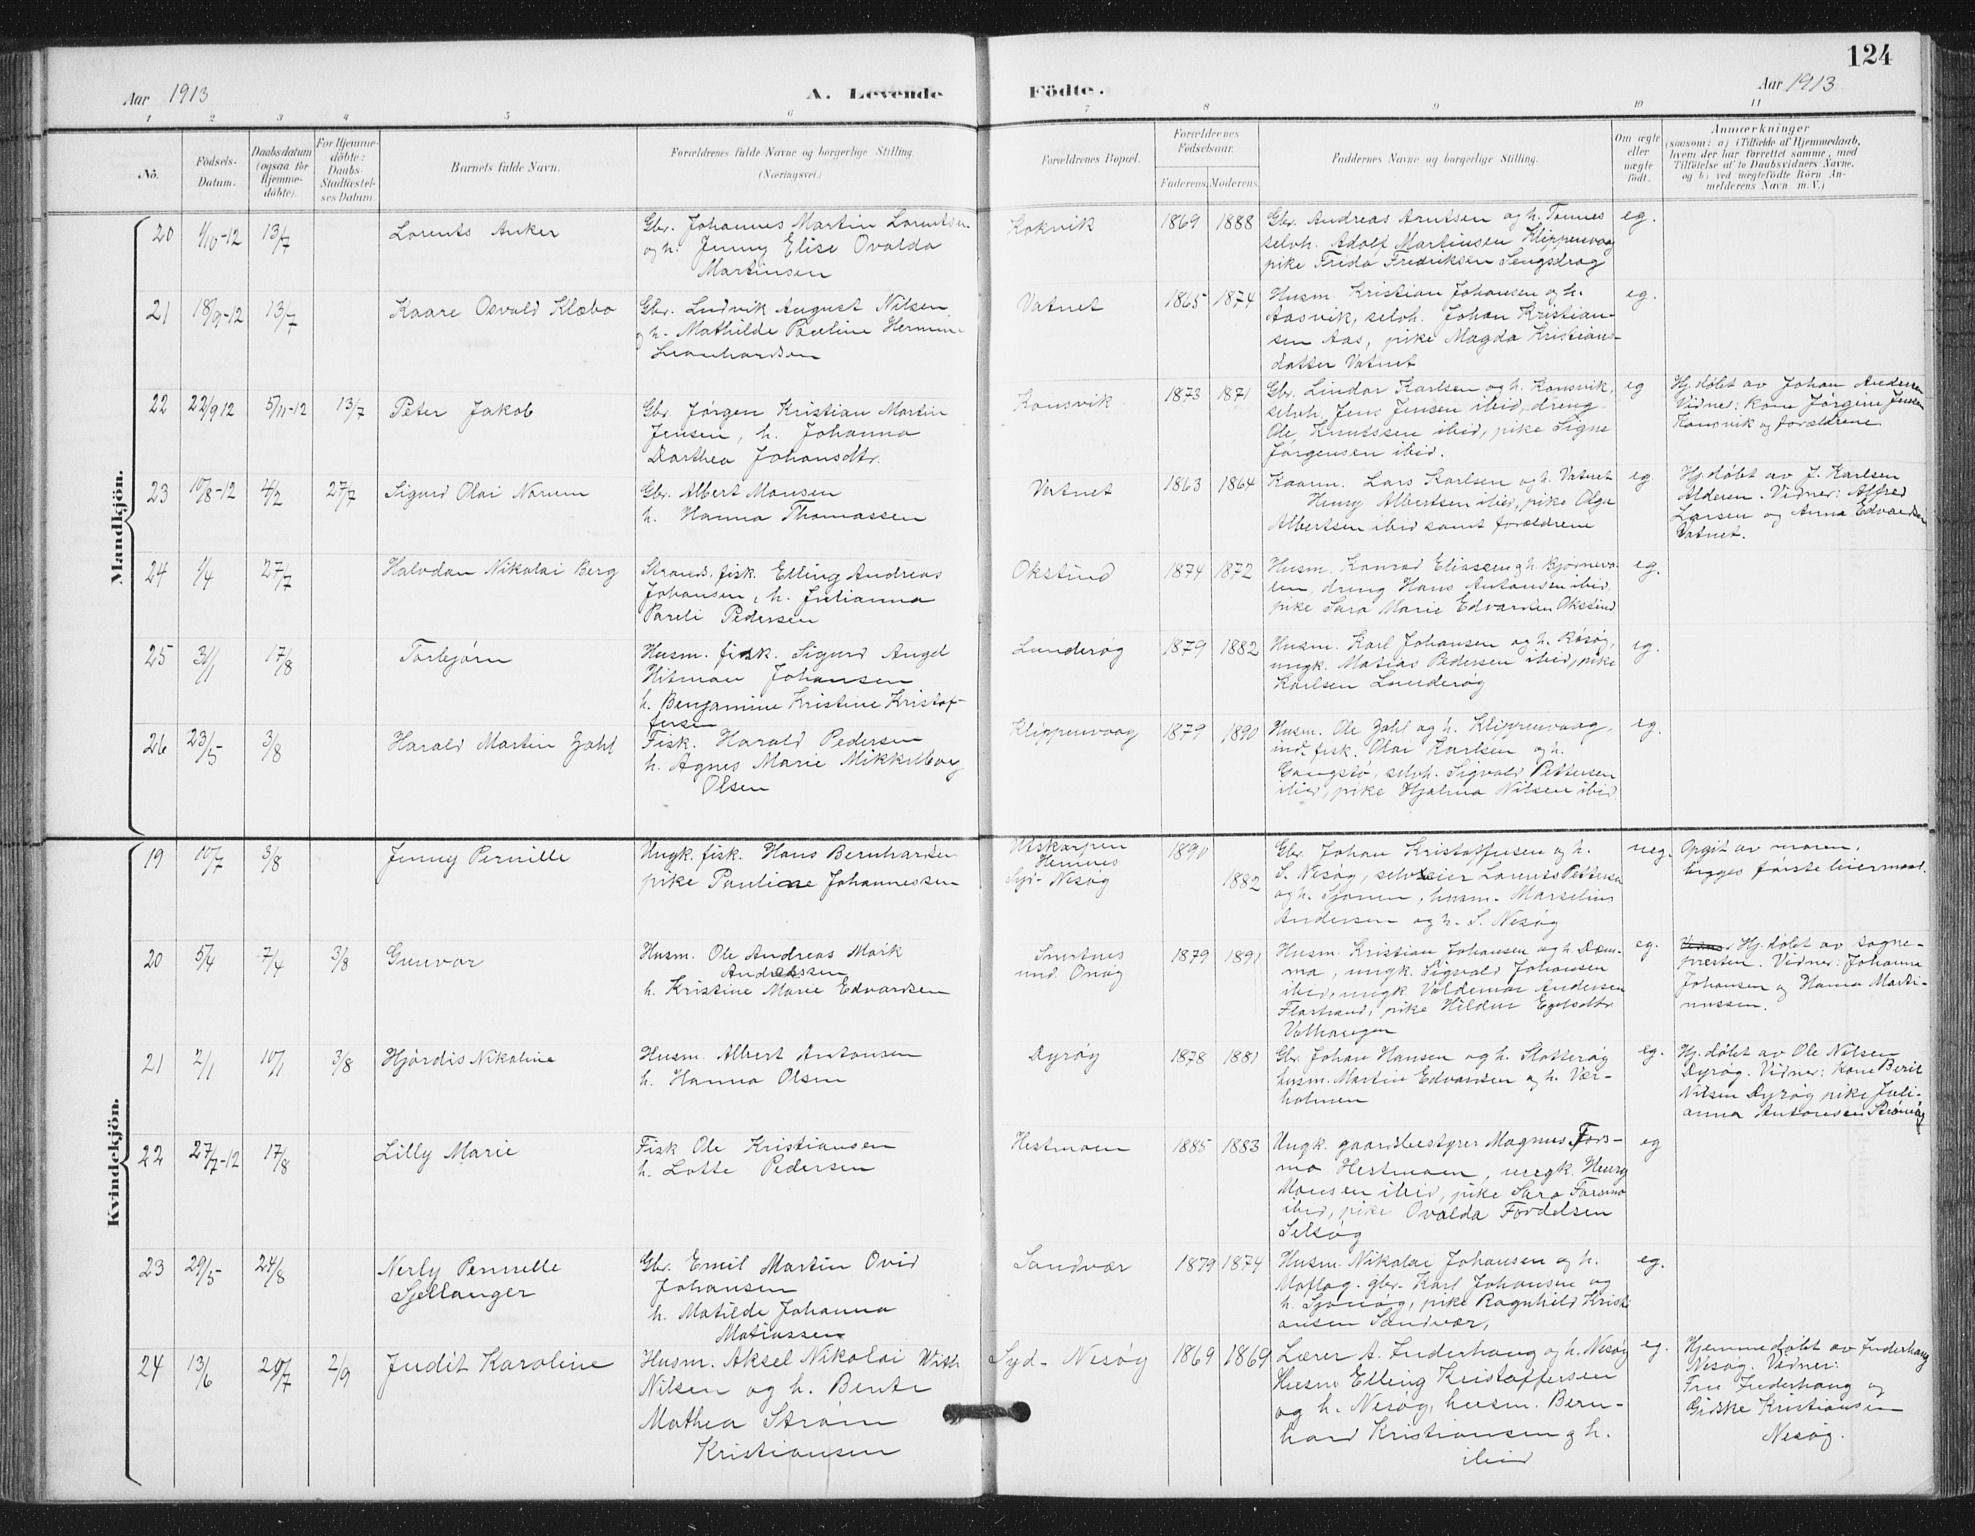 124
Aar 1913
A. Levende
Födte.
Aar 1913
1 2 3 4 5 6 7 8 9 10 11
No.
Födsels-
Datum.
Daabsdatum
(ogsaa for
Hjemme-
döbte).
For Hjemme-
döbte:
Daabs-
Stadfæstel-
ses Datum.
Barnets fulde Navn.
Forældrenes fulde Navne og borgerlige Stilling.
(Næringsvei.)
Forældrenes Bopæl.
Forældrenes
Födselsaar.
Faderens.
Moderens.
Faddernes Navne og borgerlige Stilling.
Om ægte
eller
uægte
födt.
Anmærkninger
(saasom: a) i Tilfælde af Hjemmedaab,
hvem der har forrettet samme, med
Tilföielse af to Daabsvidners Navne,
og b) ved uægtefödte Börn An-
melderens Navn m. V.)
Mandkjön.
20 1/10-12 13/7 Lorents Anker
Gbr. Johannes Martin Lorentsen
og h. Jenny Elise Ovalda
Martinsen
Kokvik 1869 1888
Gbr. Andreas Arntsen og h. Tonnes
selvh. Adolf Martinsen Klippenvaag
pike Frida Fredriksen Sengsdrag
eg.
21 18/9-12 13/7 Kaare Osvald Klæbo
Gbr. Ludvik August Nilsen
og h. Mathilde Pauline Hermine
Leonhardsen
Vatnet 1865 1874
Husm. Kristian Johansen og h.
Aasvik, selvh. Johan Kristian-
sen Aas, pike Magda Kristians-
datter Vatnet
eg.
22 22/9 12 5/11-12 13/7 Peter Jakob
Gbr. Jörgen Kristian Martin
Jensen, h. Johanna
Dorthea Johansdtr.
Konsvik 1873 1871
Gbr. Lindor Karlsen og h. Konsvik,
selvh. Jens Jensen ibid, dreng
Ole Knutssen ibid, pike Signe
Jörgensen ibid.
eg
Hj. døbt av Johan Andersen
Vidner: kone Jørgine Jensen
Konsvik og forældrene
23 10/8-12 4/2 27/7 Sigurd Olai Norum
Gbr. Albert Monsen
h. Hanna Thomassen
Vatnet 1863 1864
Kaarm. Lars Karlsen og h. Vatnet
Henry Albertsen ibid, pike Olga
Albertsen ibid samt forældrene
eg.
Hj. døbt av J. Karlsen
Alderen. Vidner: Alfred
Larsen og Anna Edvardsen
Vatnet.
24 1/4 27/7 Halvdan Nikolai Berg
Strands. fisk. Elling Andreas
Johansen, h. Julianna
Pareli Pedersen
Okstind 1874 1872
Husm. Konrad Eliassen og h.
dreng Hans Antonsen ibid
pike Sara Marie Edvardsen Okstind
eg.
25 31/1 17/8 Torbjørn
Husm. fisk. Sigurd Angel
Hitman Johansen
h. Benjamine Kristine Kristof-
fersen
Lunderøg 1879 1882
Husm. Karl Johansen og h. Røsøg,
ungk. Matias Pedersen ibid, pike
Karlsen Lunderøg
eg.
26 23/5 3/8 Harald Martin Zahl
Fisk. Harald Pedersen
h. Agnes Marie Mikkelborg
Olsen
Klippenvaag 1879 1890
Husm. Ole Zahl og h. Klippenvaag,
ind. fisk. Olai Karlsen og h.
Gangstø, selvh. Sigvald Pettersen
ibid, pike Hjalma Nilsen ibid
eg.
Kvindekjön.
19 10/7 3/8 Jenny Pernille
Ungk. fisk. Hans Bernhardsen
pike Pauline Johannessen
Utskarpen
Hemnes
Syd-Nesøg
1890
1882
Gbr. Johan Kristoffersen og h.
S. Nesøg, selveier Lorents Pettersen
og h. Sjonen, husm. Marselius
Andersen og h. S. Nesøg
ueg.
Opgit av moren.
begges første leiermaal.
20 5/4 7/4 3/8 Gunvor
Husm. Ole Andreas Mørk
Andreassen
h. Kristine Marie Edvardsen
Smitnes
und. Onøg
1879 1891
Husm. Kristian Johansen og h. Døn-
na, ungk. Sigvald Johansen
ibid, ungk Valdemar Andersen
Flostrand, pike Hildur
eg.
Hj. døbt av sogne-
presten. Vidner: Johanna
Johansen og Hanna Marti-
nussen.
21 2/1 10/1 3/8 Hjördis Nikoline
Husm. Albert Antonsen
h. Hanna Olsen
Dyrøy 1878 1881
Gbr. Johan Hansen og h. Slotterøg
husm. Martin Edvardsen og h. Vær-
holmen
eg.
Hj. døbt av Ole Nilsen
Dyrøg. Vidner: kone Berit
Nilsen Dyrøg pike Juli-
anna Antonsen
22 27/7-12 17/8 Lilly Marie
Fisk Ole Kristiansen
h. Lotte Pedersen
Hestmoen 1885 1883
Ungk. gaardsbestyrer Magnus Fors-
mo Hestmoen, ungk. Henry
Monsen ibid, pike Sara Forsmo
ibid, pike Ovalda Fordelsen
Selsøg
eg
23 29/5 24/8 Nerly Pernelle
Sjellanger
Gbr. Emil Martin Ovid
Johansen
h. Matilde Johanna
Matiassen
Sandvær 1879 1874
Husm. Nikolai Johansen og h.
Moflag. gbr. Karl Johansen og
h. Sjonøg, pike Ragnhild Kristi-
ansen Sandvær,
eg.
24 13/6 20/7 2/9 Judit Karoline
Husm. Aksel Nikolai With
Nilsen og h. Bente
Mathea Strøm
Kristiansen
Syd-Nesøg 1869 1869
Lærer A. Inderhaug og h. Nesøg
Husm Elling Kristoffersen
og h. Nesøg, husm. Bern-
hard Kristiansen og h.
ibid
eg.
Hjemmedøbt av Inderhaug
Nesøg. Vidner:
Fru Inderhaug og
Gidske Kristiansen
Nesøg.